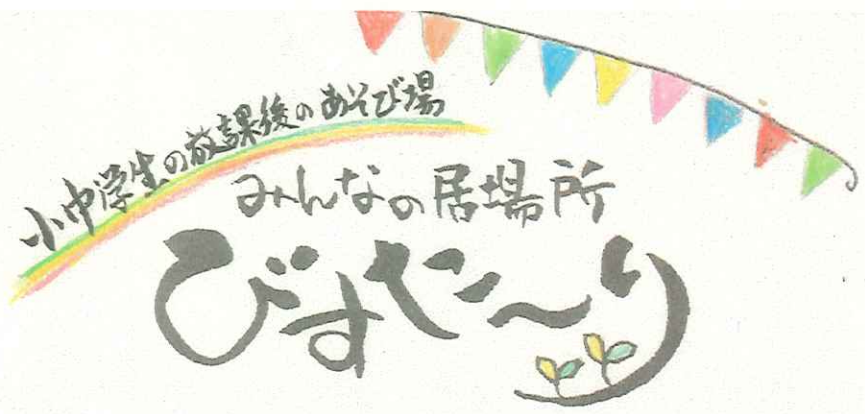 小中学生の放課後のあそび場
みんなの居場所
びすた〜り